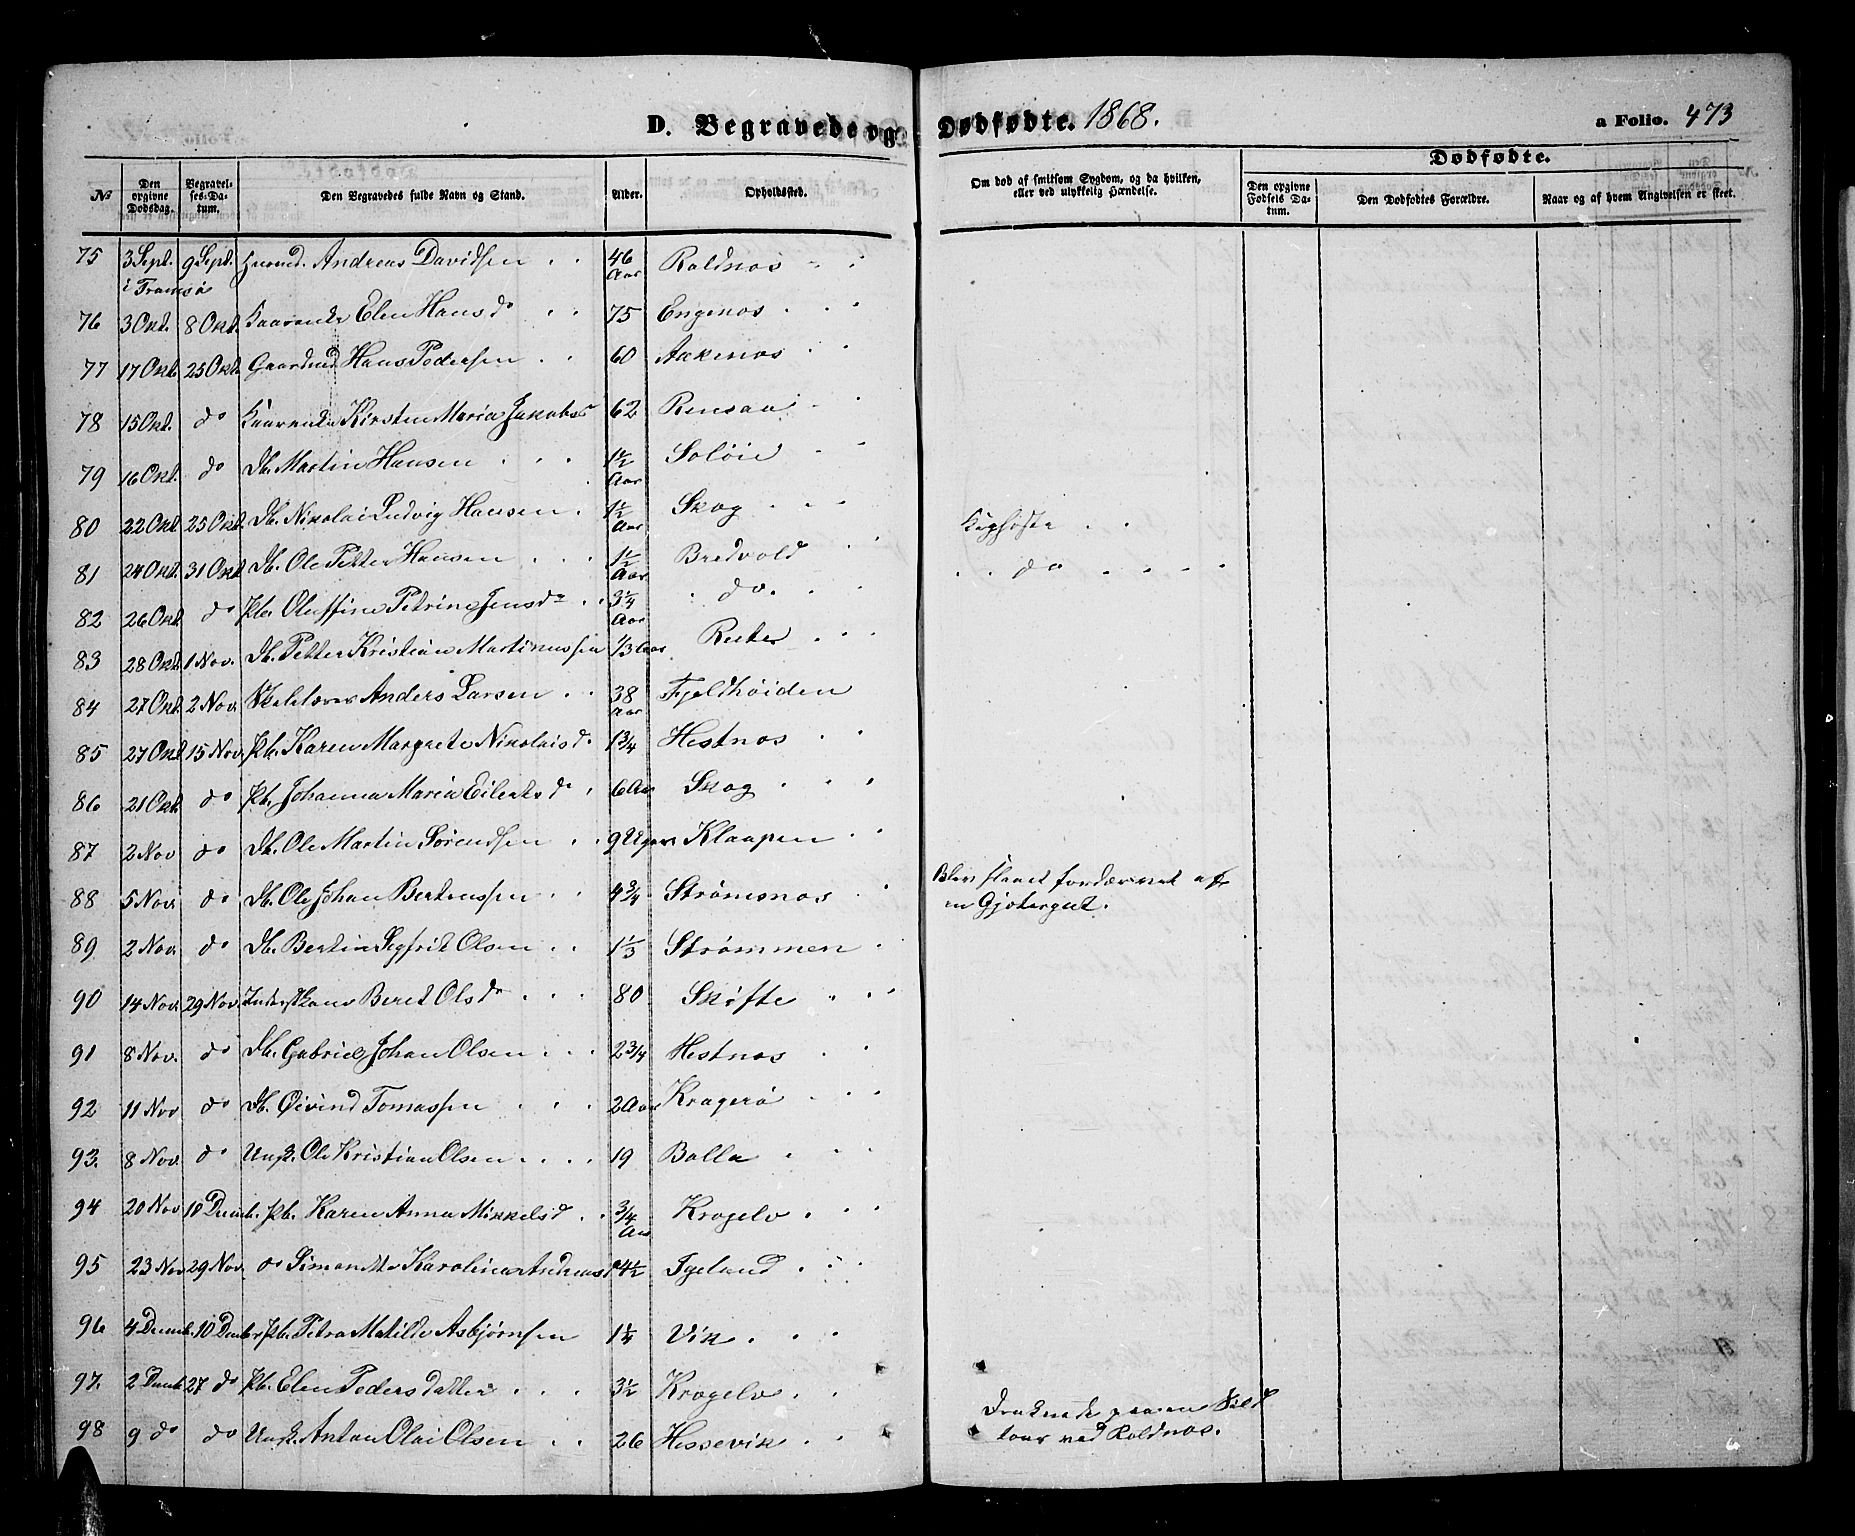 D. Begravede og Dødfødte. 1868. a Folio. 473
Dødfødte.
No Den opgivne Dødsdag. Begravelses-Datum. Den Begravedes fulde Navn og Stand. Alder. Opholdssted. Om død af smitsom Sygdom, og da hvilken, eller ved ulykkelig Hændelse. Den opgivne Fødsels Datum. Den Dødfødtes Forældre. Naar og af hvem Angivelsen er skeet.
75 3 Sept. 9 Sept. Andreas Davidsen 46 Aar Roldnæs
i Tromsø
76 3 Okt. 8 Okt. Kaarenke Elen Hansd 75 Engenæs
77 17 Okt. 25 Okt. Gaardmd Hans Pedersen 60 Aakenæs
78 15 Okt. do Kaarenke Kirsten Maria Jakobsd 62 Rensaa
79 16 Okt. do Db. Martin Hansen 1½ Aar Soløie
80 22 Okt 25 Okt. Db. Nikolai Ludvig Hansen 1½ Aar Skog Kighoste
81 24 Okt. 31 Okt. Db. Ole Petter Hansen 1½ Aar Bredvold do
82 26 Okt do Pb. Oluffine Petrine Jensd 3¼ Aar do.
83 28 Okt. 1 Nov. Db. Petter Kristian Martinussen 1/3 Aar
84 27 Okt. 2 Nov. Anders Larsen 38 Aar Fjeldhøiden
85 27 Okt. 15 Nov. Pb. Karen Margrete Nikolaisd. 1¾ Hestnæs
86 21 Okt. do Pb. Johanna Maria Eilertsd 6 Aar Skog
87 2 Nov do Db. Ole Martin Sørendsen 9 Uger Klaapen
88 5 Nov. do Db. Ole Johan Berteussen 4¾ Strømsnæs Blev slaaet fordærvet af
en Gjætergut.
89 2 Nov. do Db. Bertin Sigfrid Olsen 1⅓ Strømmen
90 14 Nov. 29 Nov. Beret Olsd 80 Skøfte
91 8 Nov. do Db. Gabriel Johan Olsen 2¾ Hestnæs
92 11 Nov do Db. Øivind Tomassen 2 Aar Kragerø
93. 8 Nov. do Ungk. Ole Kristian Olsen 19 Balla
94 20 Nov 10 Decemb. Pb. Karen Anna Mikkelsd ¾ Aar Krogelv
95 23 Nov 29 Nov. do Simonette Karoline Andreasd 4½ Tgeland
96 4 Decemb. 10 Decmber Pb. Petra Matilde Asbjørnsen 1¼ Vik
97. 2 Decmb 27 do Pb. Elen Pedersdatter 3½ Krogelv
98 9 do do Ungk. Anton Olai Olsen 26 Hessevik Druknede paa en Sild
tour ved Roldnæs.